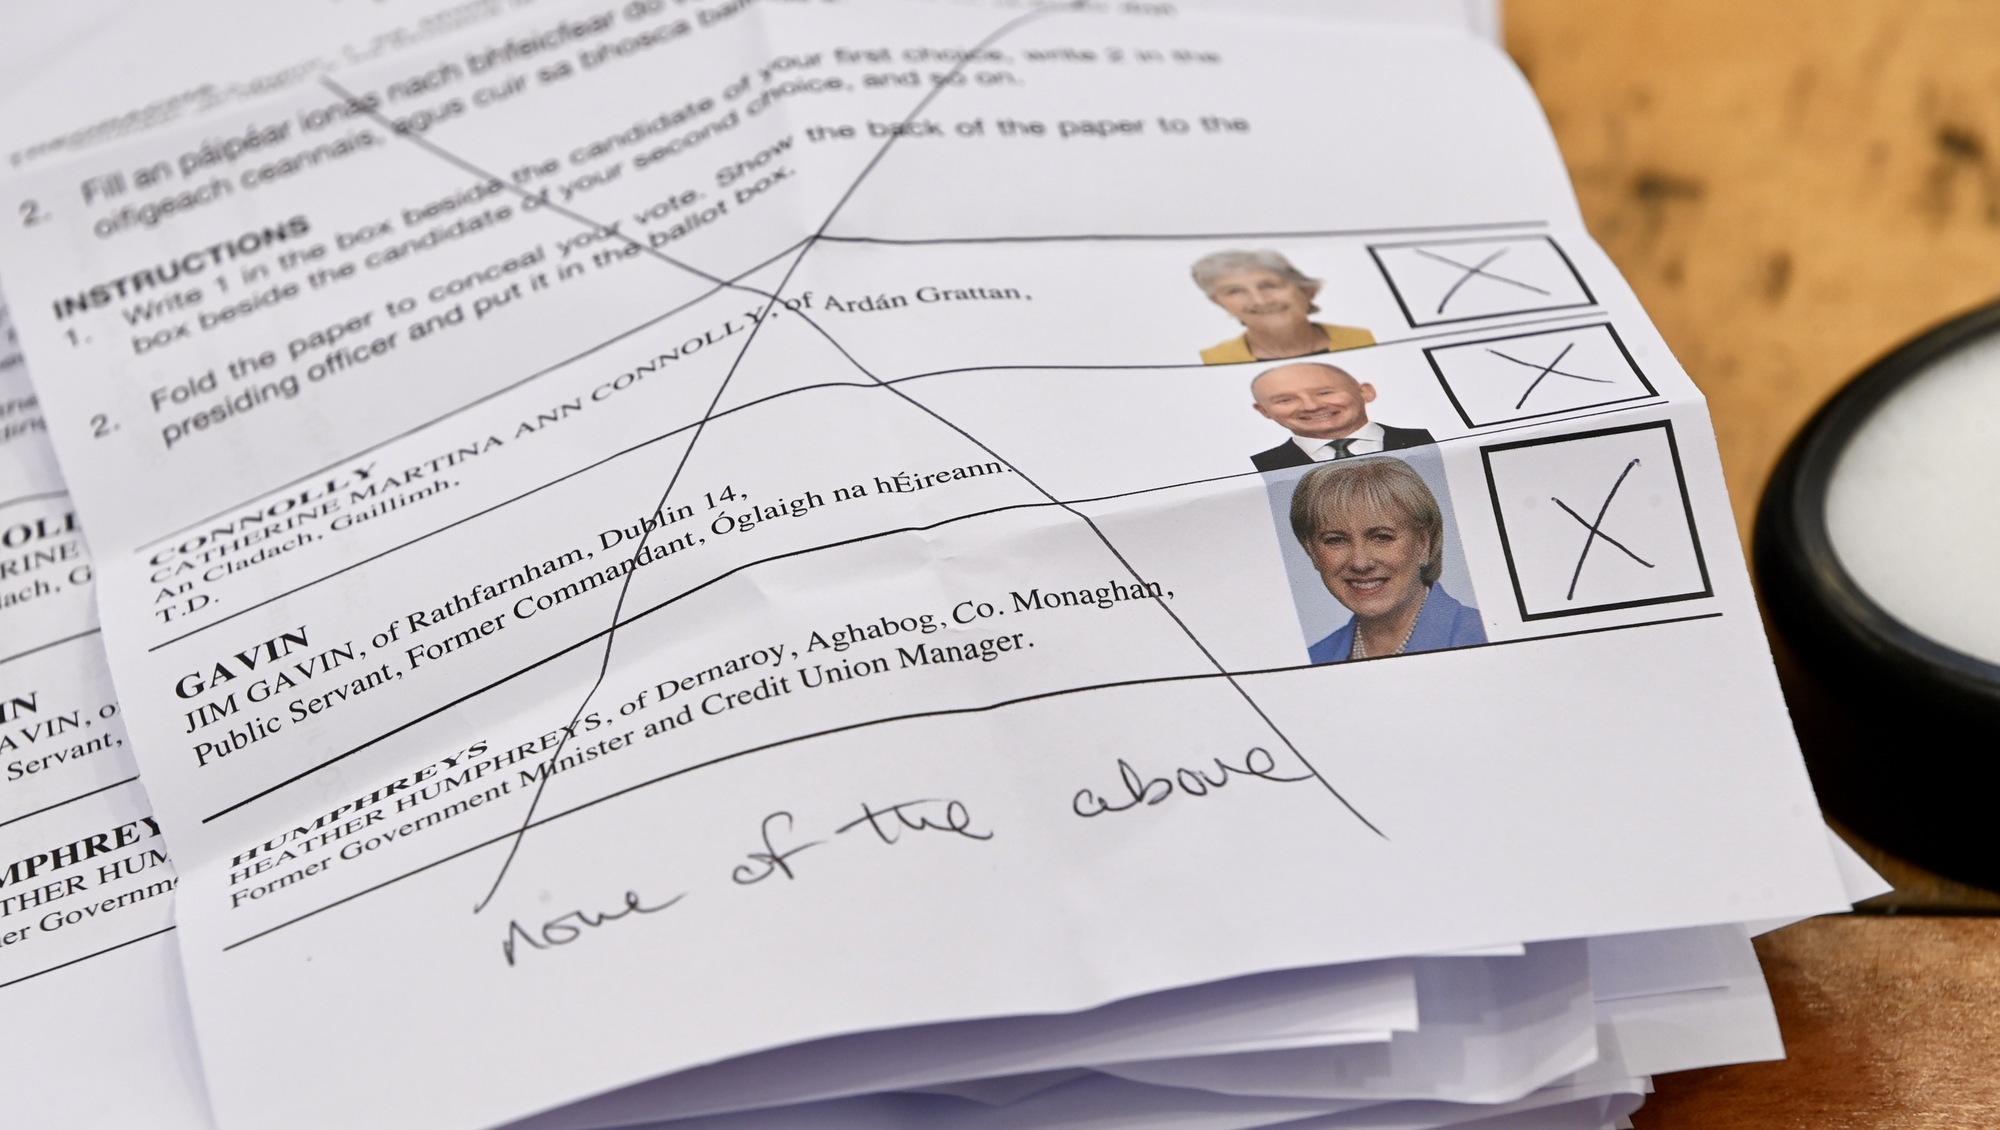 2. Fill an páipéar ionas nach bhfeicfear do
oifigeach ceannais, agus cuir sa bhosca
INSTRUCTIONS
1. Write 1 in the box beside the candidate of your first choice, write 2 in the
box beside the candidate of your second choice, and so on.
2. Fold the paper to conceal your vote. Show the back of the paper to the
presiding officer and put it in the ballot box.
CONNOLLY
CATHERINE MARTINA ANN CONNOLLY, of Ardán Grattan,
An Cladach, Gaillimh.
T.D.
GAVIN
JIM GAVIN, of Rathfarnham, Dublin 14,
Public Servant, Former Commandant, Óglaigh na hÉireann.
HUMPHREYS
HEATHER HUMPHREYS, of Dernaroy, Aghabog, Co. Monaghan,
Former Government Minister and Credit Union Manager.
none of the above
OLL
RINE
ach, G
IN
AVIN, o
Servant,
MPHREY
THER HUM
er Governm